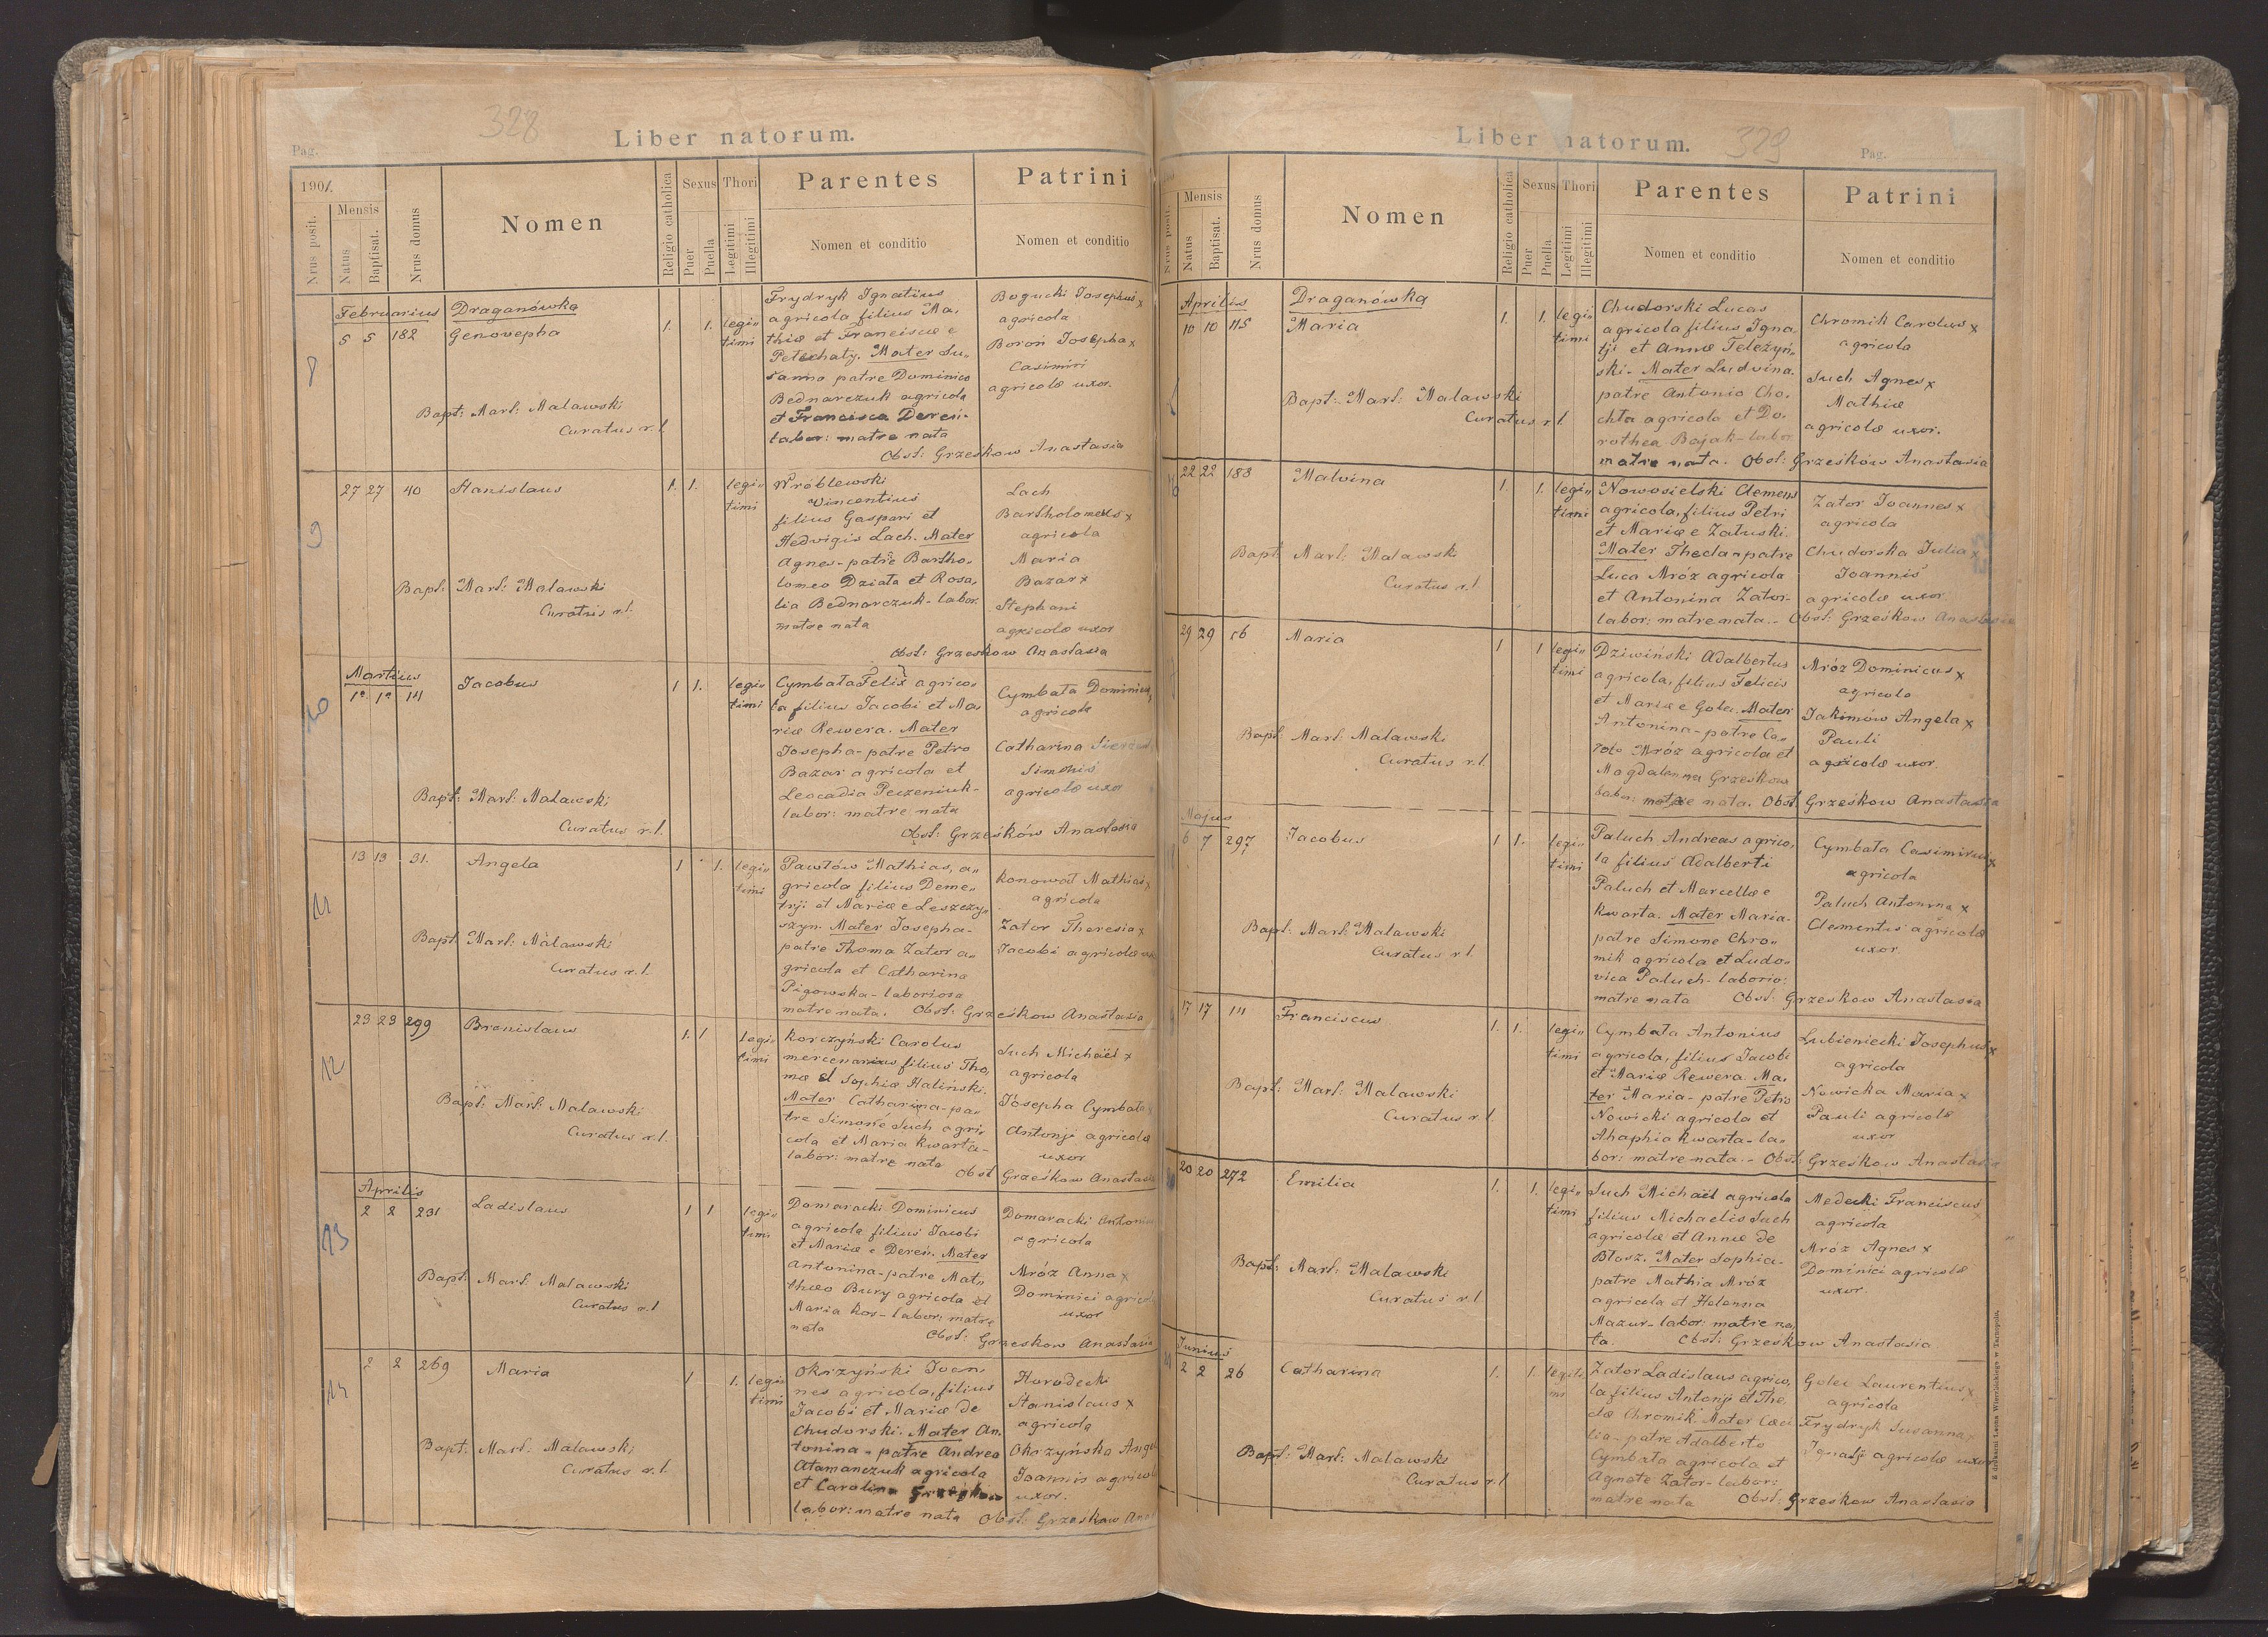 328
Liber natorum.
Pag.
190
Nrus posit.
Mensis
Natus
Baptisat.
Nrus domus
Nomen
Religio catholica
Sexus
Puer
Puella
Thori
Legitimi
Illegitimi
Parentes
Nomen et conditio
Patrini
Nomen et conditio
8
Februarius Draganówka
5 5 182 Genovepha 1. 1. legi„
timi
Bapt: Mart: Malawski
Curatus r. l.
Frydryk Ignatius
agricola filius Ma„
thiæ et Franciscæ e
Petechaty. Mater Su„
sanna patre Dominico
Bednarczuk agricola
et Francisca Dereń-
labor: matre nata
Bogucki Josephus x
agricola
Boroń Josepha x
Casimiri
agricolæ uxor.
Obst: Grzeskow Anastasia
9
27 27 40 Stanislaus 1. 1. legi„
timi
Bapt: Mart: Malawski
Curatus r.l.
Wróblewski
Vincentius
filius Gaspari et
Hedvigis Lach. Mater
Agnes-patre Bartho„
lomeo Działa et Rosa„
lia Bednarczuk-labor.
matre nata
Lach
Bartholomeus x
agricola
Maria
Bazar x
Stephani
agricolæ uxor
Obst: Grzeskow Anastasia
10
Martius
12 12 141 Jacobus 1 1. legi„
timi
Bapt: Mart: Malawski
Curatus r.l.
Cymbała Felix agrico„
la filius Jacobi et Ma„
riæ Rewera. Mater
Josepha-patre Petro
Bazar agricola et
Leocadia Peczeniuk-
labor: matre nata
Cymbała Dominicus
agricola
Catharina
Simonis
agricolæ uxor
Obst: Grześków Anastasia
11
13 13 31. Angela 1 1. legi„
timi
Bapt Mart: Malawski
Curatus r.l.
Pawłów Mathias, a„
gricola filius Deme„
trji et Mariæ e Leszczy„
szyn. Mater Josepha-
patre Thoma Zator a„
gricola et Catharina
Pigowska-laboriosa
matre nata. Obst: Grześkow Anastasia
Konował Mathias x
agricola
Zator Theresia x
Jacobi agricolæ
12
23 23 299 Bronislaus 1. 1 legi„
timi
Bapt: Mart: Malawski
Curatus r.l.
Korczyński Carolus
mercenarius filius Tho„
mæ et Sophiæ Haliński.
Mater Catharina-pa„
tre Simone Such agri„
cola et Maria Kwarta-
labor: matre nata
Such Michaël x
agricola
Josepha Cymbała
Antonji agricolæ
uxor
Obst Grześkow Anastasia
13
Aprilis
2 2 231 Ladislaus 1 1 legi„
timi
Bapt: Mart: Malawski
Curatus r.l
Domaracki Dominicus
agricola filius Jacobi
et Mariæ e Dereń. Mater
Antonina-patre Mat„
thæo Bury agricola et
Maria Kos-labor: matre
nata
Domaracki Antonius
agricola
Mróz Anna x
Dominici agricolæ
uxor
Obst: Grzeskow Anastasia
14
2 2 269 Maria 1 1. legi„
timi
Bapt: Mart: Malawski
Curatus r.l.
Okrzyński Joan„
nes agricola, filius
Jacobi et Mariæ de
Chudorski. Mater An„
tonina-patre Andrea
Atamanczuk agricola
et Carolina
labor: matre nata
Horodecki
Stanislaus x
agricola
Okrzyńska
Joannis
uxor.
Obst: Grzeskow
Liber natorum.
329
Pag.
Nrus posit.
Mensis
Natus
Baptisat.
Nrus domus
Nomen
Religio catholica
Sexus
Puer
Puella
Thori
Legitimi
Illegitimi
Parentes
Nomen et conditio
Patrini
Nomen et conditio
Aprilis Draganówka
10 10 115 Maria 1. 1. legi„
timi
Bapt: Mart: Malawski
Curatus r.l.
Chudorski Lucas
agricola filius Igna„
tji et Annæ Teleżyń„
ski-Mater Ludvina-
patre Antonio Cho„
chla agricola et Do„
rothea Bajak-labor
matre nata. Obst: Grześków Anastasia
Chromik Carolus x
agricola
Such Agnes x
Mathiæ
agricolæ uxor.
22 22 183 Malvina 1. 1. legi„
timi
Bapt: Mart: Malawski
Curatus r.l.
Nowosielski Clemens
agricola, filius Petri
et Mariæ e Załuski.
Mater Thecla-patre
Luca Mróz agricola
et Antonina Zator-
labor: matre nata.- Obst: Grześkow Anastasia
Zator Joannes x
agricola
Chudorska Julia x
Joannis
agricolæ uxor
29 29 56 Maria 1 1 legi„
timi
Bapt: Mart: Malawski
Curatus r.l.
Dziwiński Adalbertus
agricola, filius Felicis
et Mariæ e Golec. Mater
Antonina-patre Ca„
rolo Mróz agricola et
Magdalenna Grześkow
labor: matre nata. Obst Grześkow Anastasia
Mróz Dominicus x
agricola
Jakimów Angela x
Pauli
agricolæ uxor.
Majus
6 7 297 Jacobus 1 1. legi„
timi
Bapt: Mart: Malawski
Curatus r.l.
Paluch Andreas agrico„
la filius Adalberti
Paluch et Marcellæ e
Kwarta. Mater Maria-
patre Simone Chro„
mik agricola et Ludo„
vica Paluch-laborio:
matre nata Obst: Grzeskow Anastasia
Cymbała Casimirus x
agricola
Paluch Antonina x
Clementis agricolæ
uxor.
17 17 141 Franciscus 1. 1. legi„
timi
Bapt: Mart: Malawski
Curatus r.l.
Cymbała Antonius
agricola, filius Jacobi
et Mariæ Rewera. Ma„
ter Maria-patre Petro
Nowicki agricola et
Ahaphia Kwarta-la„
bor: matre nata.- Obst: Grześkow Anastasia
Lubieniecki Josephus x
agricola
Nowicka Maria x
Pauli agricolæ
uxor
20 20 272 Emilia 1. 1. legi„
timi
Bapt: Mart: Malawski
Curatus r.l.
Such Michaël agricola
filius Michaelis Such
agricolæ et Annæ de
Błasz. Mater Sophia-
patre Mathia Mróz
agricola et Helenna
Mazur-labor: matre na„
ta. Obst: Grześkow Anastasia
Medecki Franciscus x
agricola
Mróz Agnes x
Dominici agricolæ
uxor.
Junius
2 2 26 Catharina 1. 1. legiti„
mi
Bapt: Mart: Malawski
Curatus r.l.
Zator Ladislaus agrico„
la filius Antonji et The„
clæ Chromik. Mater Cæci„
lia-patre Adalberto
Cymbała agricola et
Agnete Zator-labor:
matre nata Obst: Grzeskow Anastasia
Golec Laurentius x
agricola
Frydryk Susanna x
Ignatji agricolæ uxor
Z drukarni Leona Wierzbickiego w Tarnopolu.